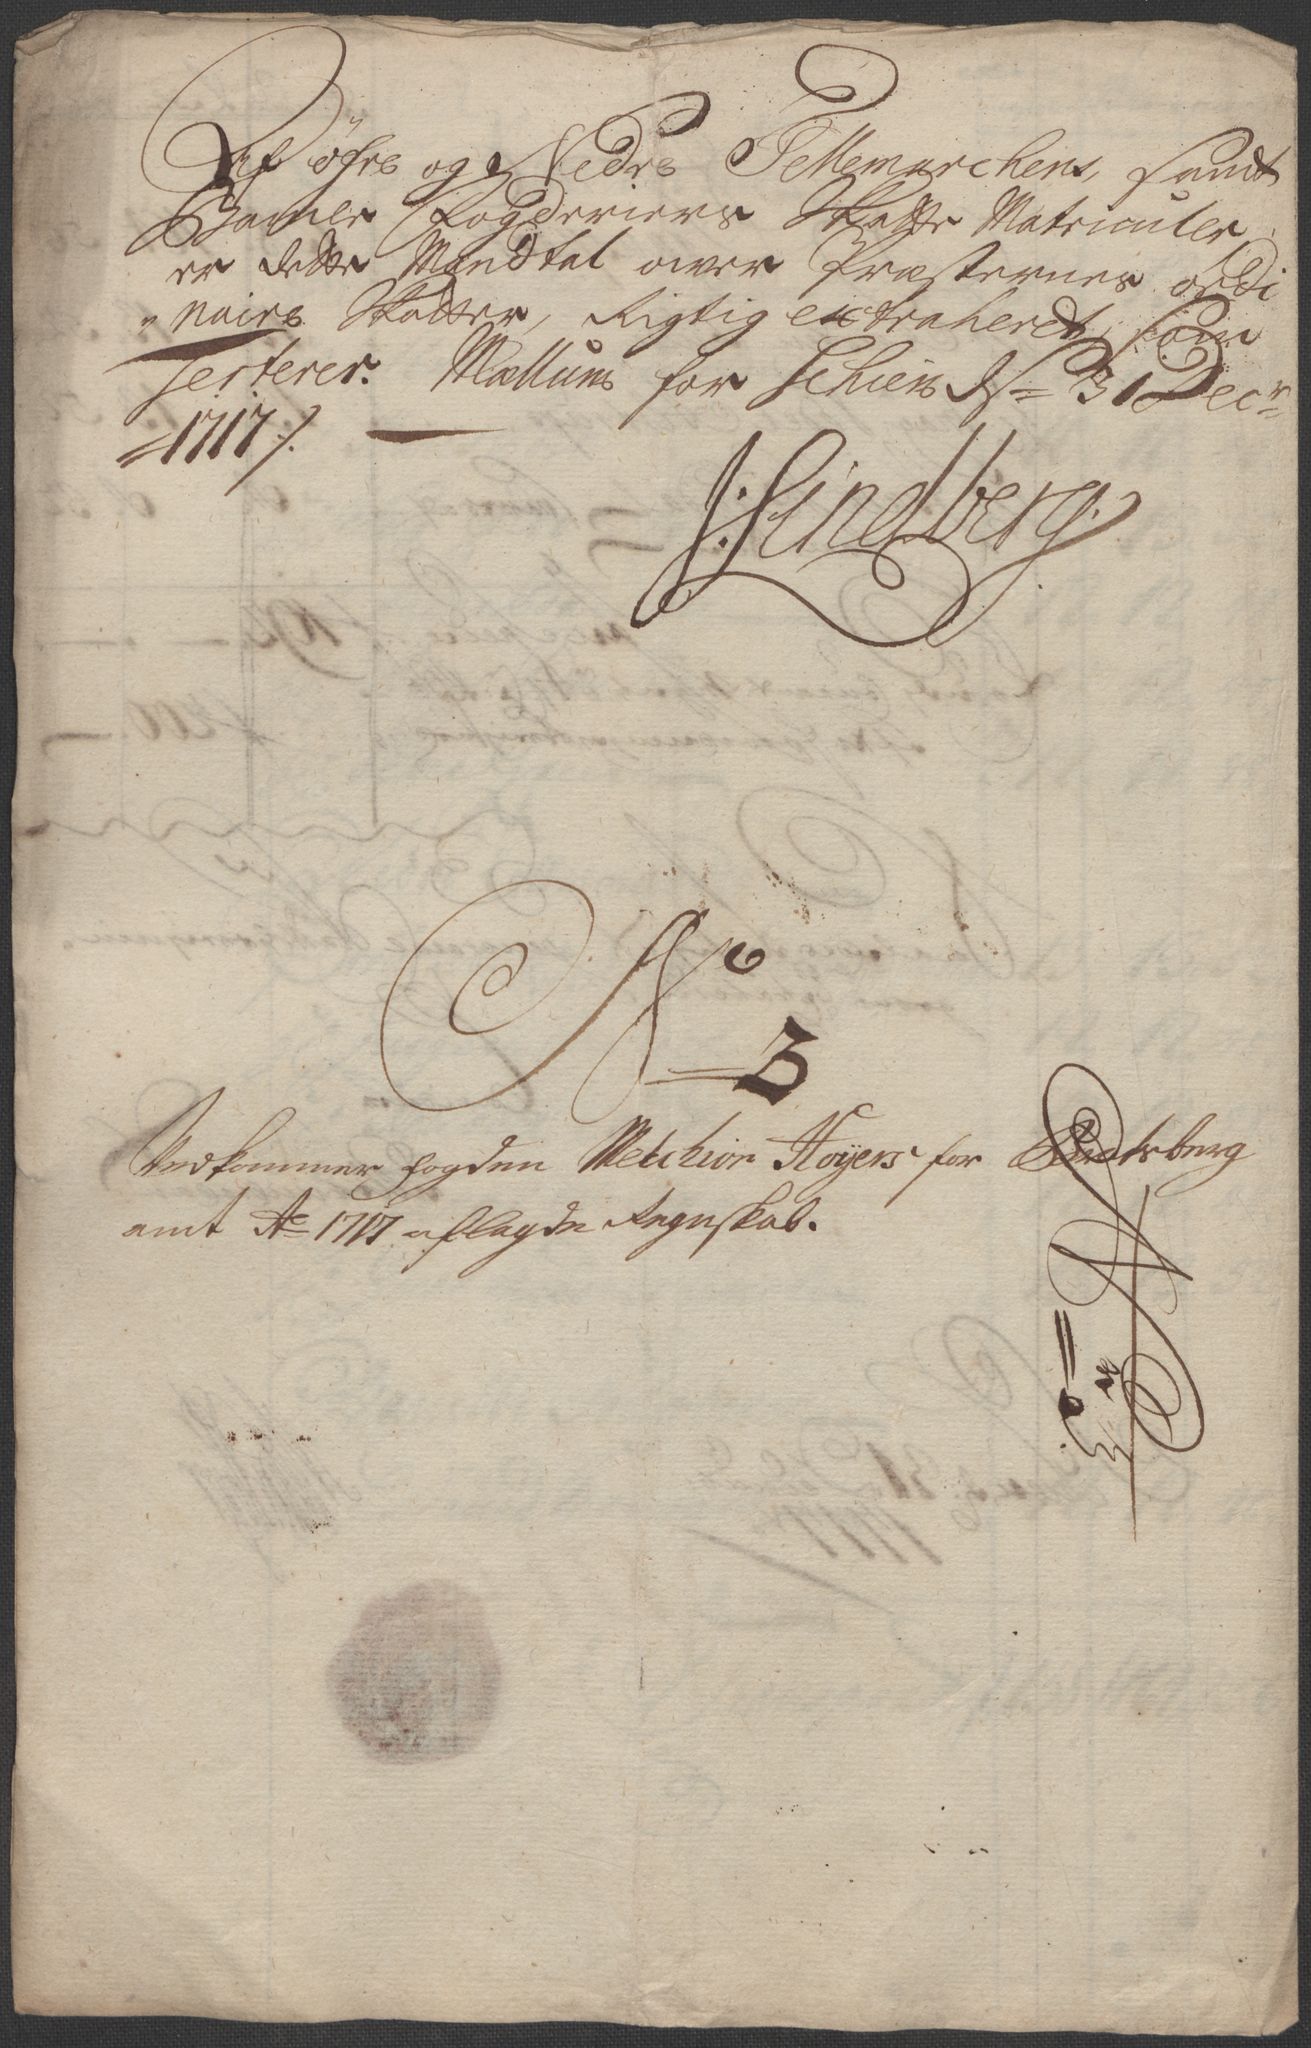 Af öfre og Nedre Tellemarchens, samt
Bamle Fogderiers Skatte Matriculer,
er dette Mandtal over Præsternes ordi
naire Skatter, Rigtig extraheret, som
testerer. Mællum for Schien ds= 31 Decr
1717/.
J: Lindberg.
No
3
Vedkommer fogden Melchior Høÿers for Bratsberg
amt Ao 1717 aflagde Regnskab.
No